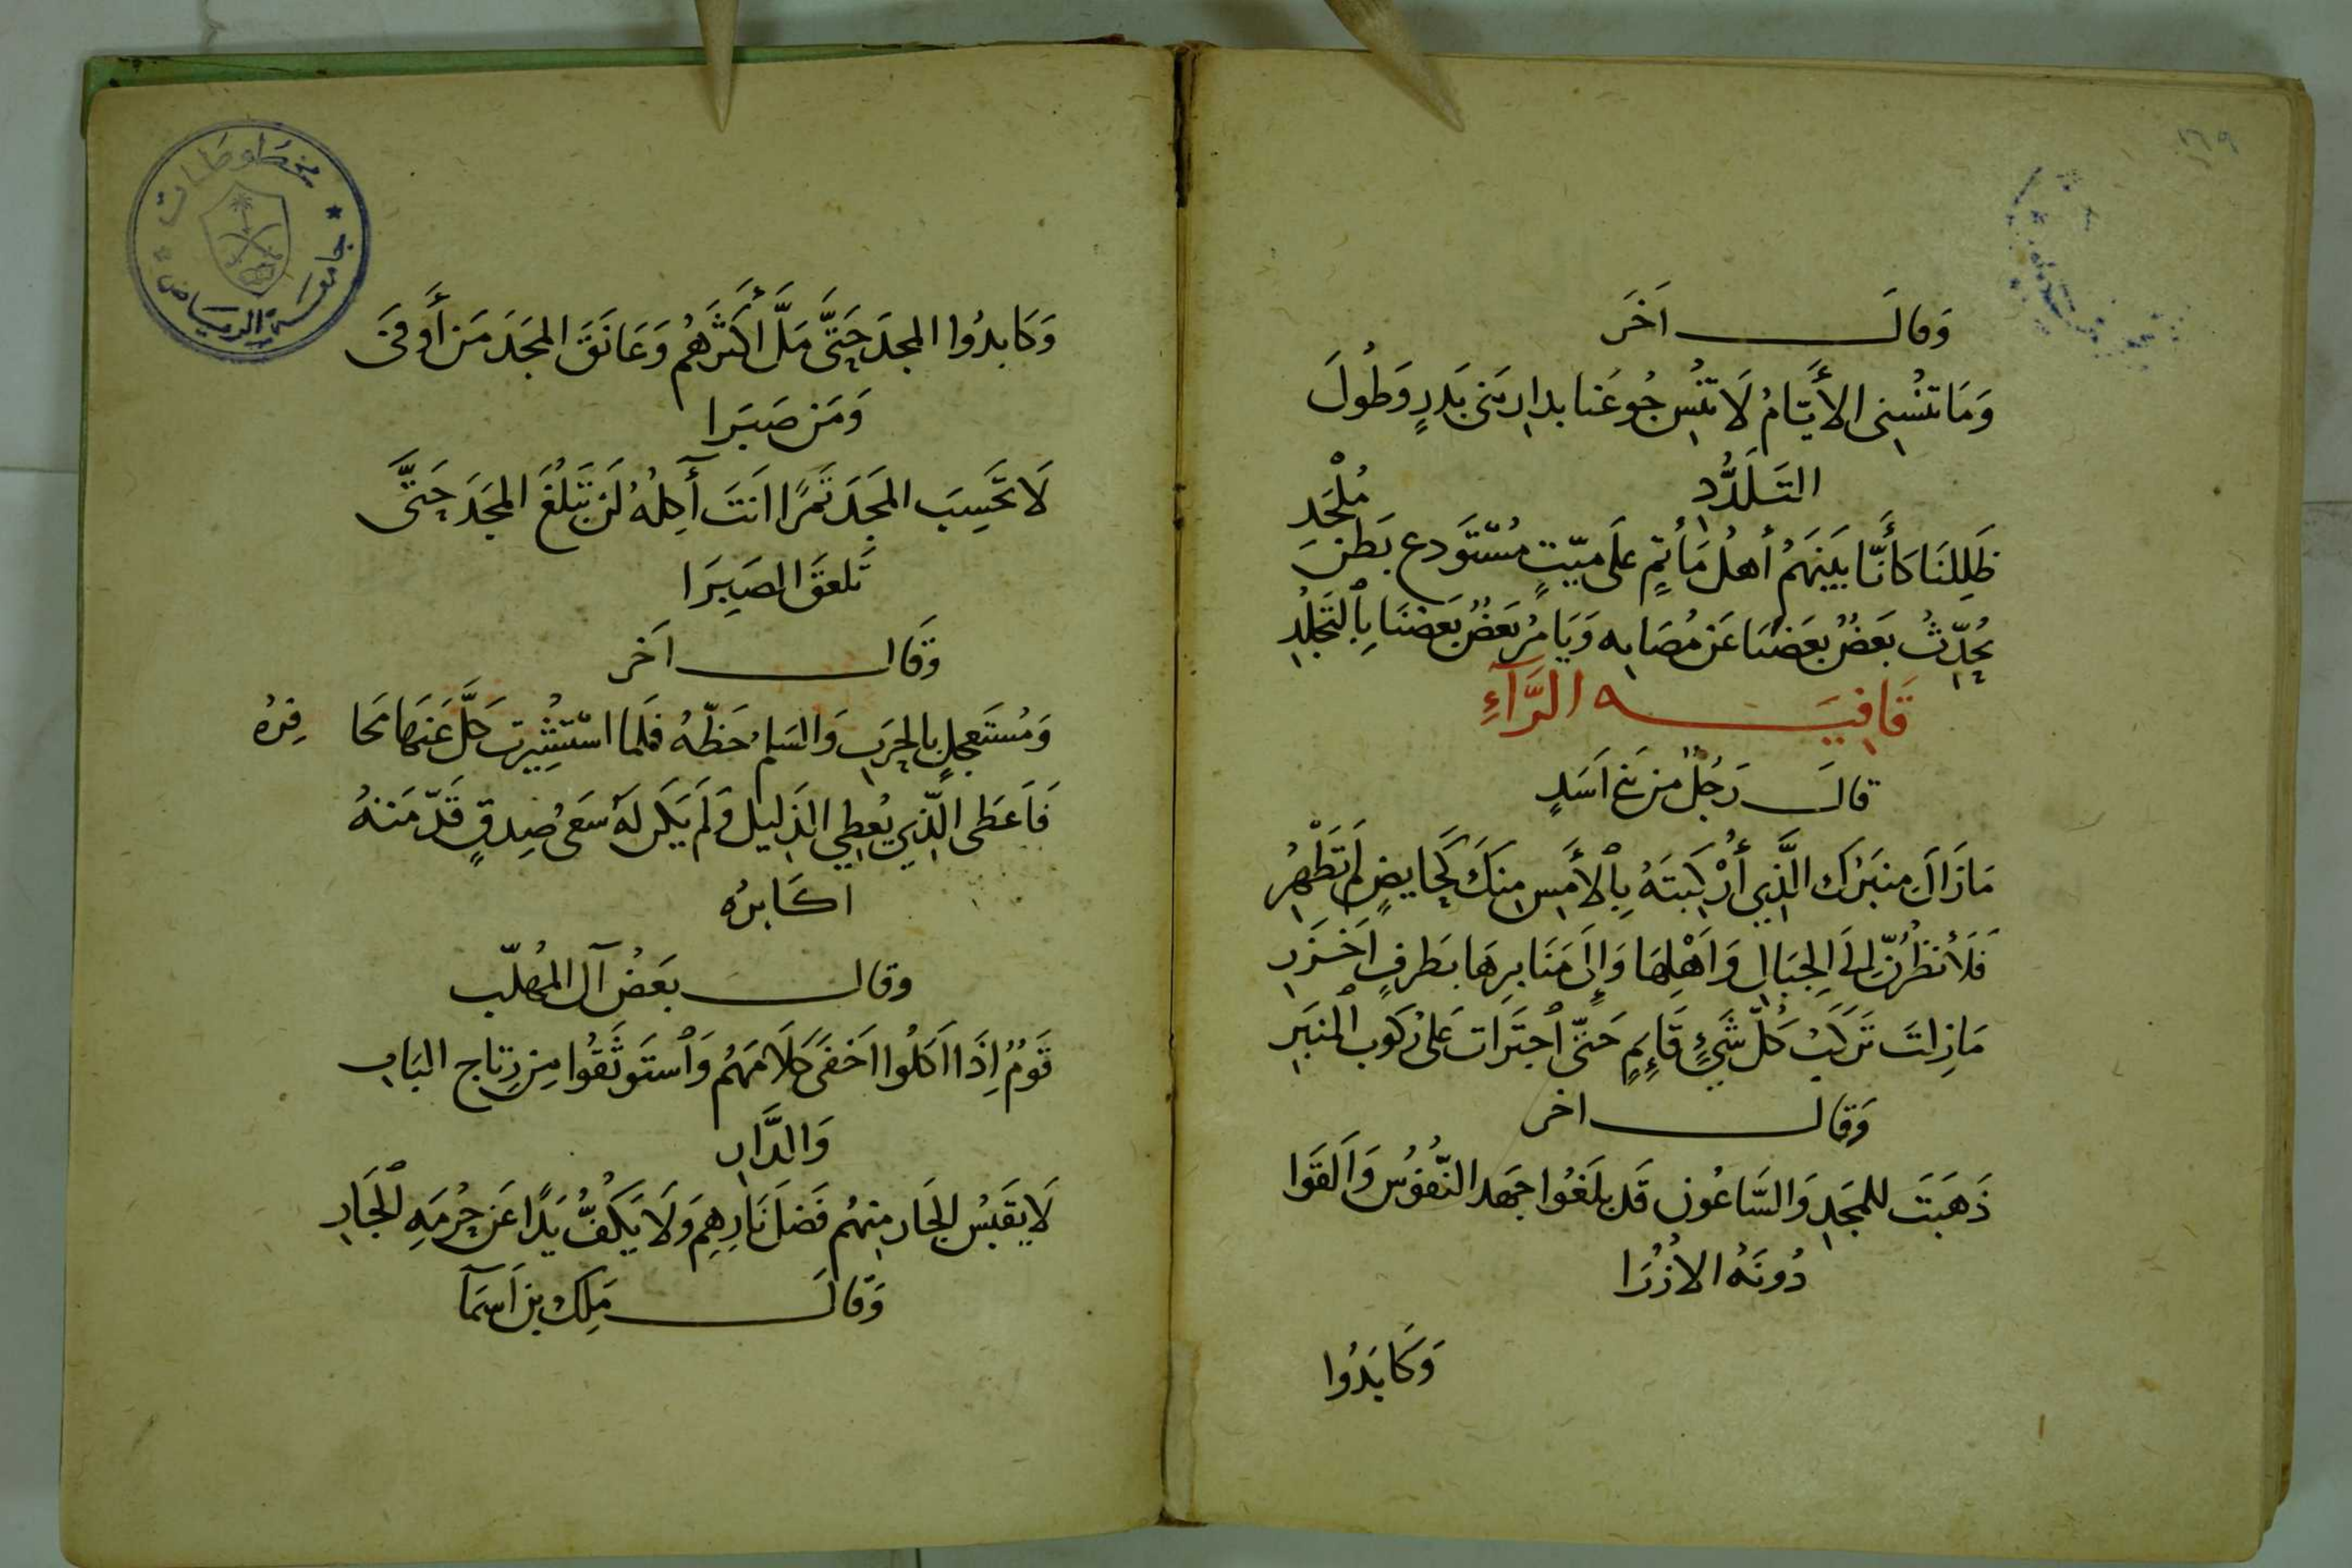 ١٦٩
وَقالَ اَخَر
وَمَا تنْسِنى الأَيَّامُ لَا تنْس جُوعَنا بدارِ بَنى بَدرٍ وَطُولَ
التَلَدُّدِ
ظَلِلنَا كَأَنَّا بَينَهَمُ أهلُ مَأتمٍ عَلَى ميّتٍ مُسْتَودع بَطنَ مُلْحَدِ
يُحدِّثُ بَعَضٌ بعَضنَا عَن مُصَابه وَيَامرُ بَعَضٌ بَعضنَا بِالتَجَلُّدِ
قَافِيَه الرَّآءِ
قالَ رَجُلٌ مِن بَنِي اَسَدٍ
مَازَالَ مِنبَرُك الَّذِي أرْكَبتَهُ بِالأَمسِ مِنكَ كَحَايضٍ لَم تَطْهُرِ
فَلَأنظُرنّ اِلَى الِجبَالِ وَاَهْلِهَا وَإِلَى مَنَابِرِهَا بطَرفٍ اَخزَرِ
مَازِلتَ تَركَبُ كُلَّ شَيءٍ قَائمٍ حَتّى اجتَرَات عَلى رُكوب المنبَرِ
وَقال اخر
ذَهَبَتَ للمَجَدِ وَالسَّاعُون قَد بلَغوُا جَهد النُّفوُس وَاَلقَوا
دُونَهُ الاُزُرَا
وَكَابَدُوا
مخطوطات
جامعة الرياض
وَكَابدُوا المجدَ حَتَّى مَلَّ أَكثَرُهُم وَعَانَقَ المجَدَ مَن أَوفَى
وَمَن صَبَرَا
لَا تحَسِبَ المَجَدَ تَمرًا اَنتَ آَكِلُهُ لَن تَبْلُغَ المجَدَ حَتَّى
تَلعَقَ الصَبِرَا
وَقَال اَخر
وَمُستَعجِلٍ بالحَرَبِ وَالسَلمُ حَظّهُ فلَما اسْتُثِيرت كَلَّ عَنهَا محَافِرُهُ
فَاَعَطى الَّذِي يُعطِي الذَليل وَلَم يَكن لَهُ سَعىُ صِدقٍ قَدّمَتهُ
اكَابرُه
وقال بعَضُ آل المُهلّب
قَومٌ اِذَا اَكَلُوا اَخَفَى كَلَامَهُم وَاستَوثَقُوا مِن رِتَاجِ البَابِ
وَالدَّارِ
لَا يَقبَسُ الجَار مِنهُم فَضَلَ نَارِهِم وَلَا يَكُفُّ يَدًا عَن حُرمَهِ الجَارِ
وَقَالَ مَلِك بن اَسمَآ